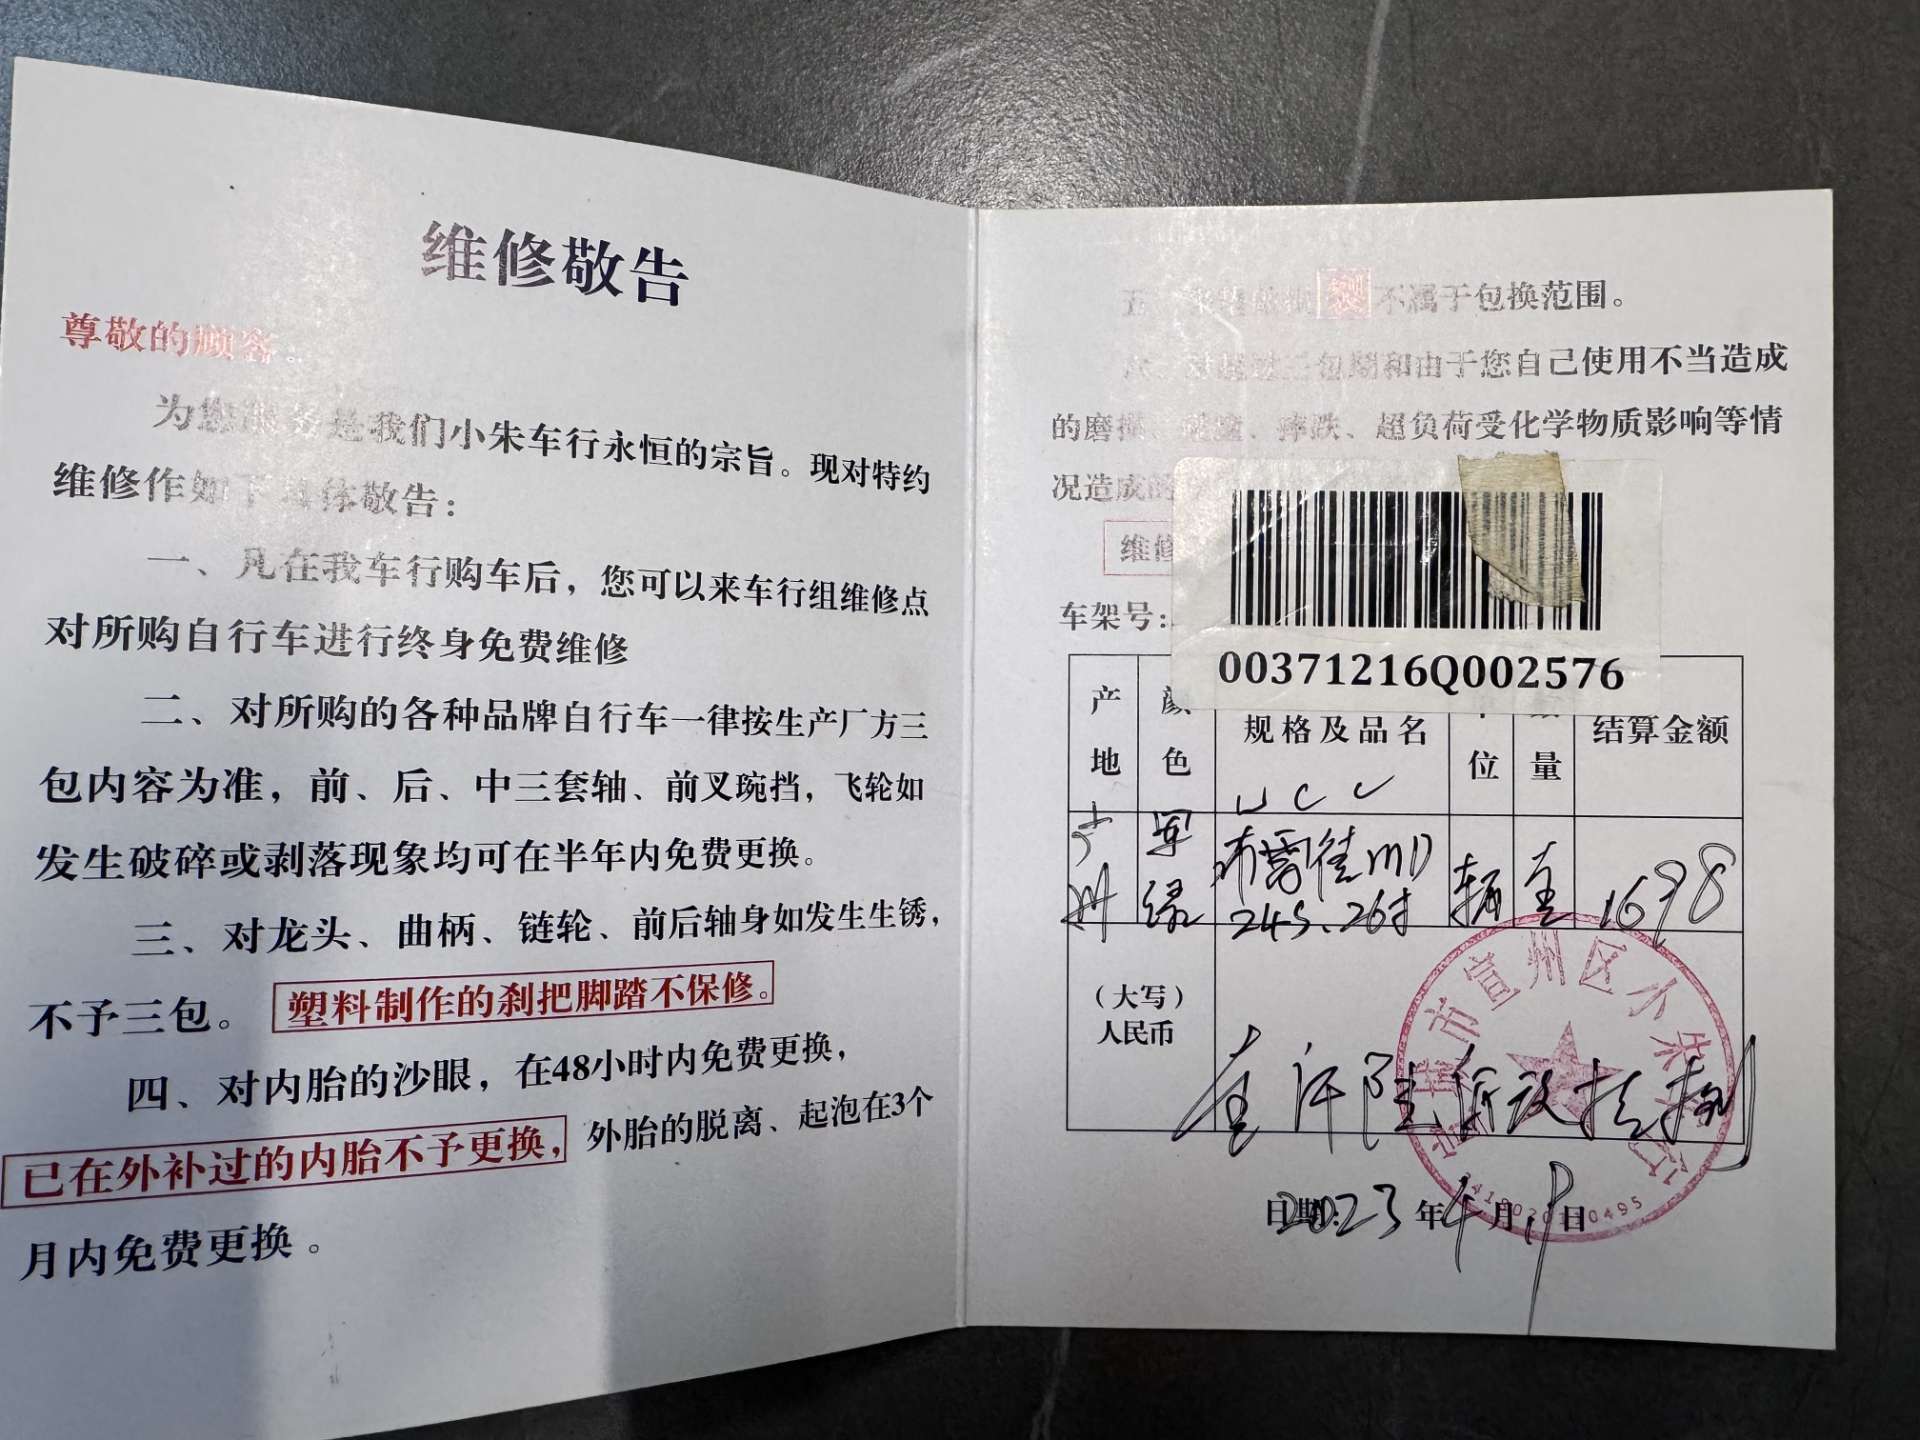 维修敬告
尊敬的顾客：
为您服务是我们小朱车行永恒的宗旨。现对特约
维修作如下具体敬告：
一、凡在我车行购车后，您可以来车行组维修点
对所购自行车进行终身免费维修
二、对所购的各种品牌自行车一律按生产厂方三
包内容为准，前、后、中三套轴、前叉琬挡，飞轮如
发生破碎或剥落现象均可在半年内免费更换。
三、对龙头、曲柄、链轮、前后轴身如发生生锈，
不予三包。塑料制作的刹把脚踏不保修。
四、对内胎的沙眼，在48小时内免费更换，
已在外补过的内胎不予更换，外胎的脱离、起泡在3个
月内免费更换。
五、 不属于包换范围。
包期和由于您自己使用不当造成
的磨 、摔跌、超负荷受化学物质影响等情
况造成的
维修
车架号：
00371216Q002576
产地 颜色 规格及品名 单位 数量 结算金额
UCC
广州 军绿 24S.26寸 辆 壹 1698
（大写）
人民币
壹仟陆佰玖拾捌
市宣州区小朱
日期：2023年4月 日